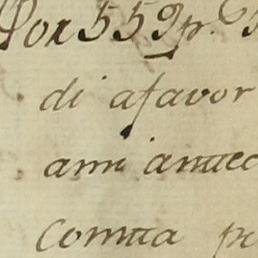 Por 559 p.
di afavor
ami antec
contra p